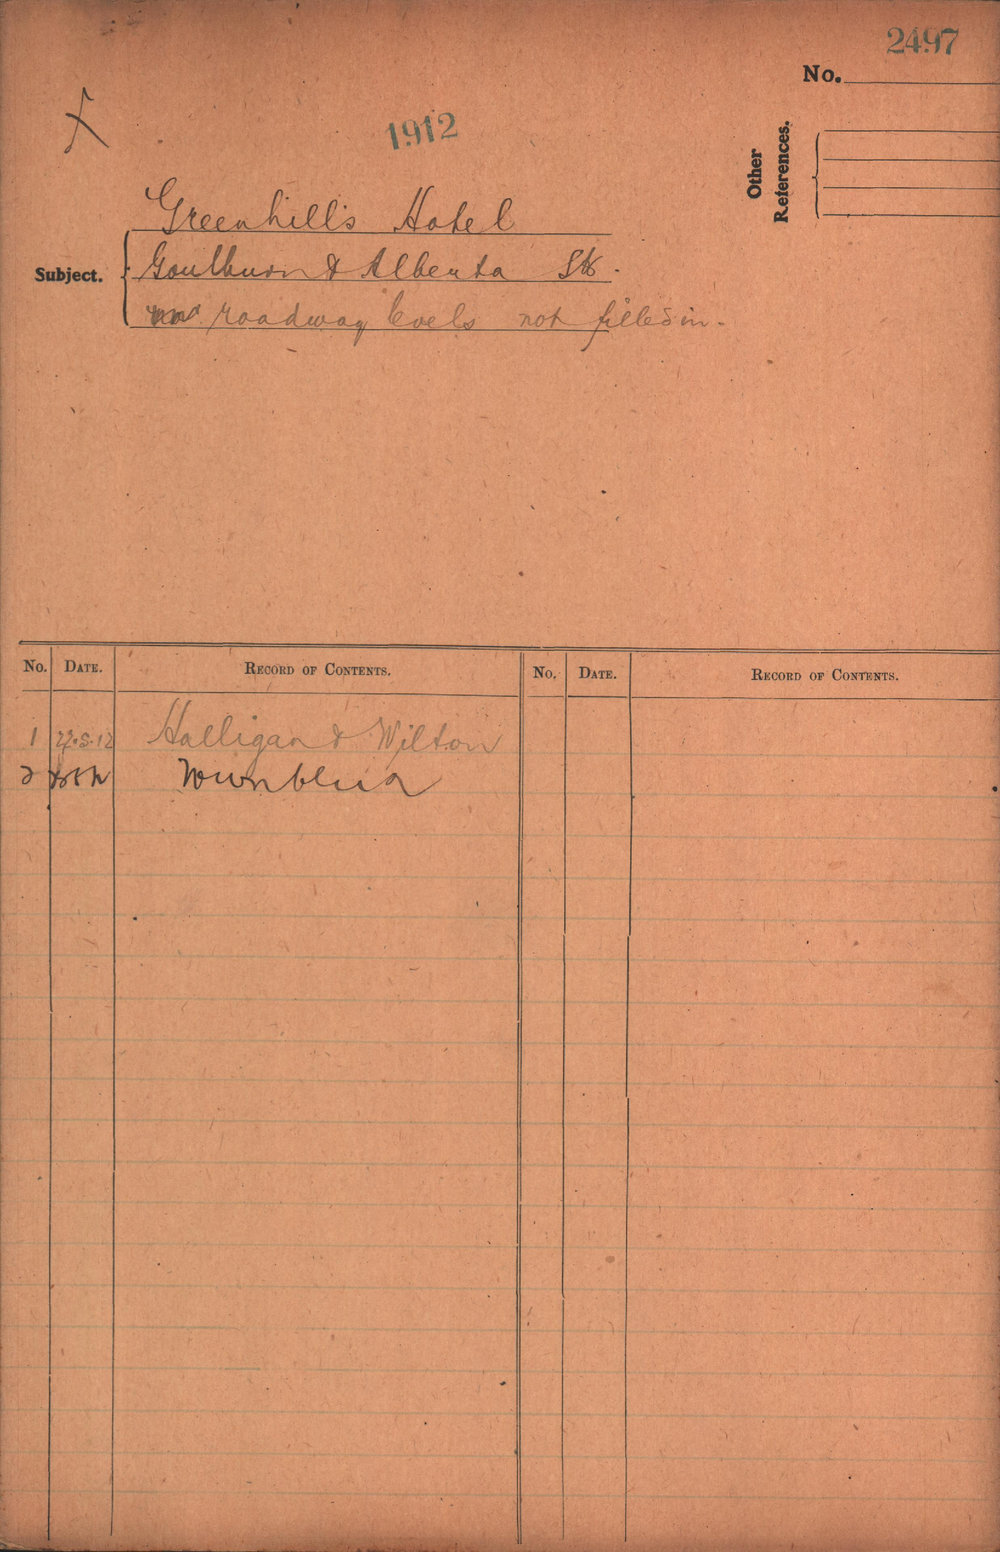 2497
No.
1912
Other
References.
Greenhill's Hotel
Subject.
Goulburn & Alberta Sts.
roadway levels not filled in.
No. DATE. RECORD OF CONTENTS. No. DATE. RECORD OF CONTENTS.
1 27.5.12 Halligan & Wilton
2 Town Clerk